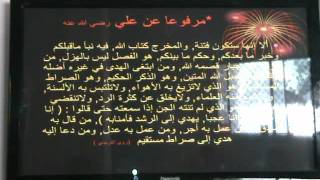 *مرفوعا عن علي رضي الله عنه
* ألا إنها ستكون فتنة، والمخرج كتاب الله، فيه نبأ ماقبلكم
وخبر ما بعدكم، وحكم ما بينكم، هو الفصل ليس بالهزل، من
جبار قصمه الله، ومن ابتغى الهدى في غيره أضله
الله المتين، وهو الذكر الحكيم، وهو الصراط
هو الذي لاتزيغ به الأهواء، ولاتلتبس به الألسنة،
منه العلماء، ولايخلق عن كثرة الرد، ولاتنقضي
هو الذي لم تنته الجن إذا سمعته حتى قالوا : ( إنا
عجبا، يهدي إلى الرشد فآمنا به )، من قال به
عمل به أجر، ومن حكم به عدل، ومن دعا إليه
هدي إلى صراط مستقيم
Panasonic